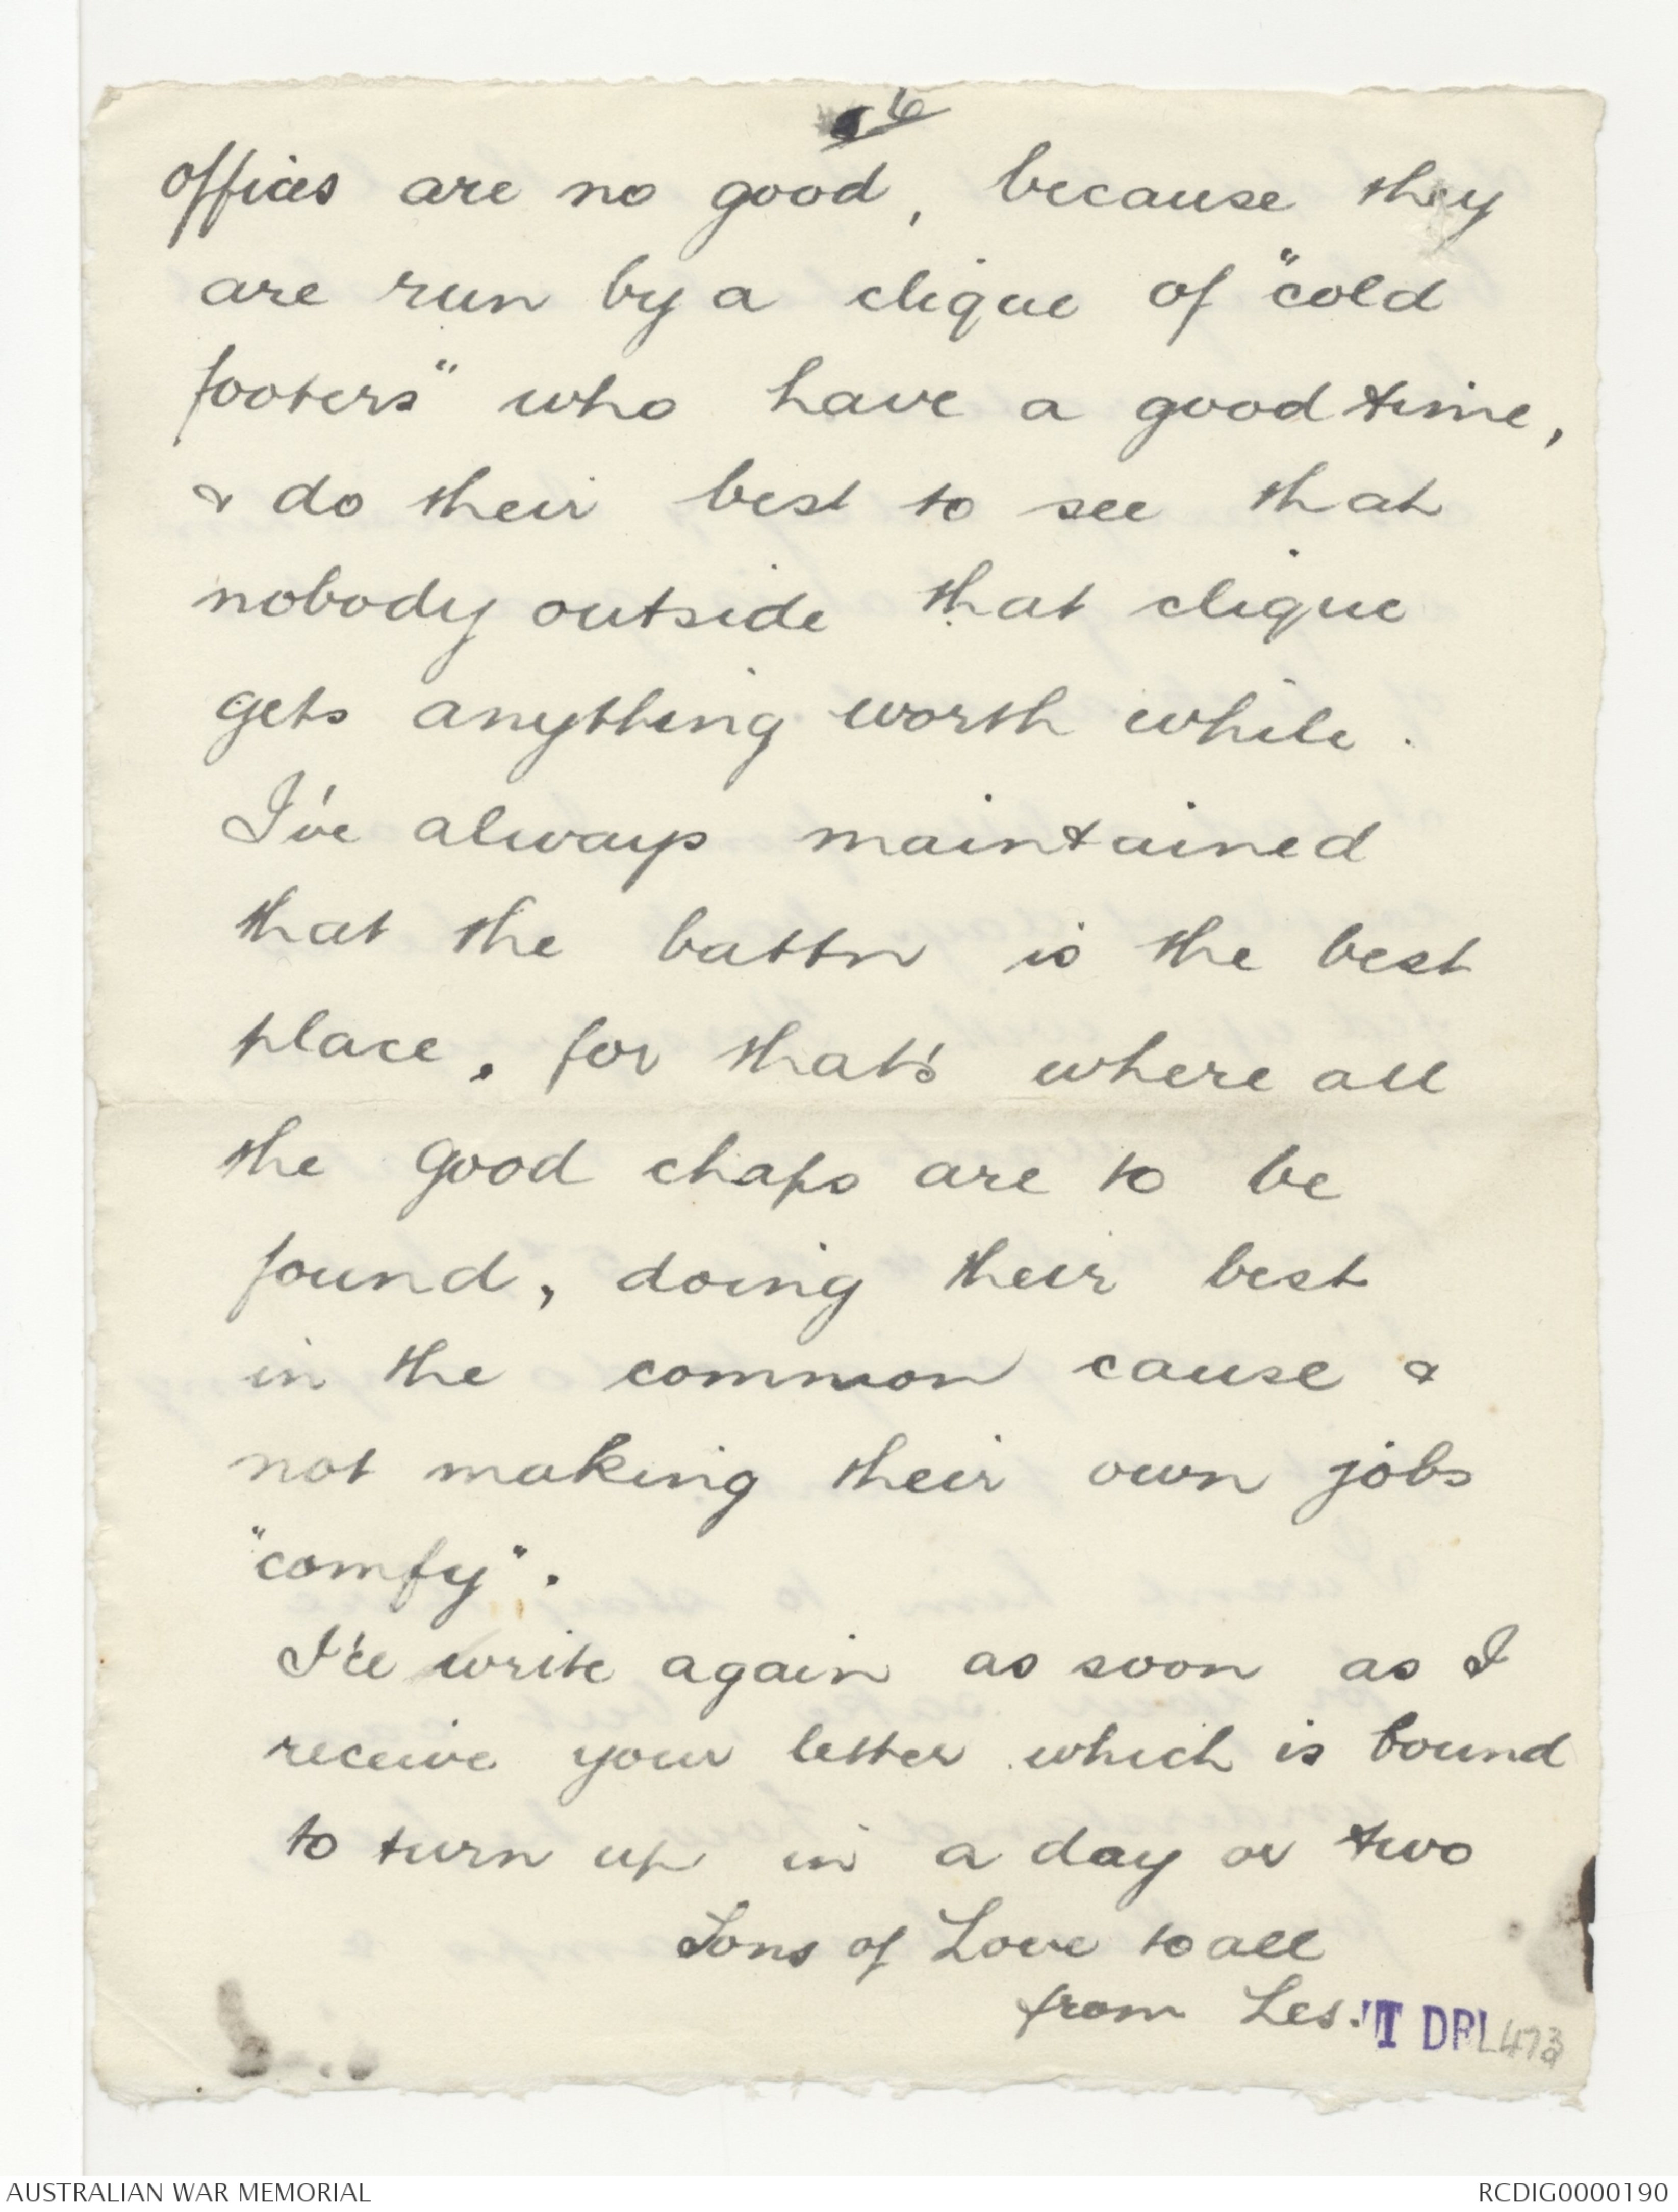 6
offices are no good, because they
are run by a clique of "cold
footers" who have a good time,
& do their best to see that
nobody outside that clique
gets anything worth while.
I've always maintained
that the battn is the best
place, for that's where all
the good chaps are to be
found, doing their best
in the common cause &
not making their own jobs
"comfy".
I'll write again as soon as I
receive your letter which is bound
to turn up in a day or two
Tons of Love to all
from Les.
DRL 473
AUSTRALIAN WAR MEMORIAL
RCDIG0000190